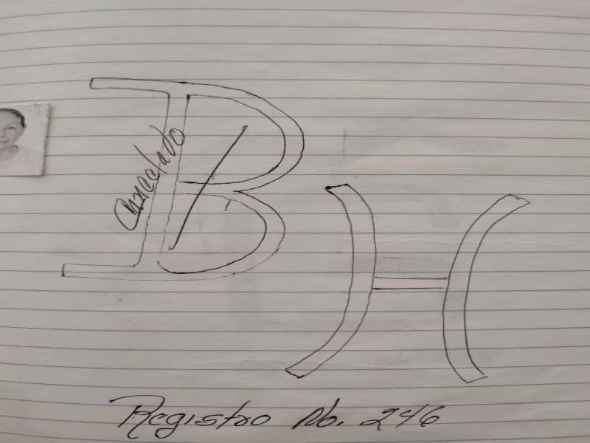 Cancelado
B
H
Registro No. 246